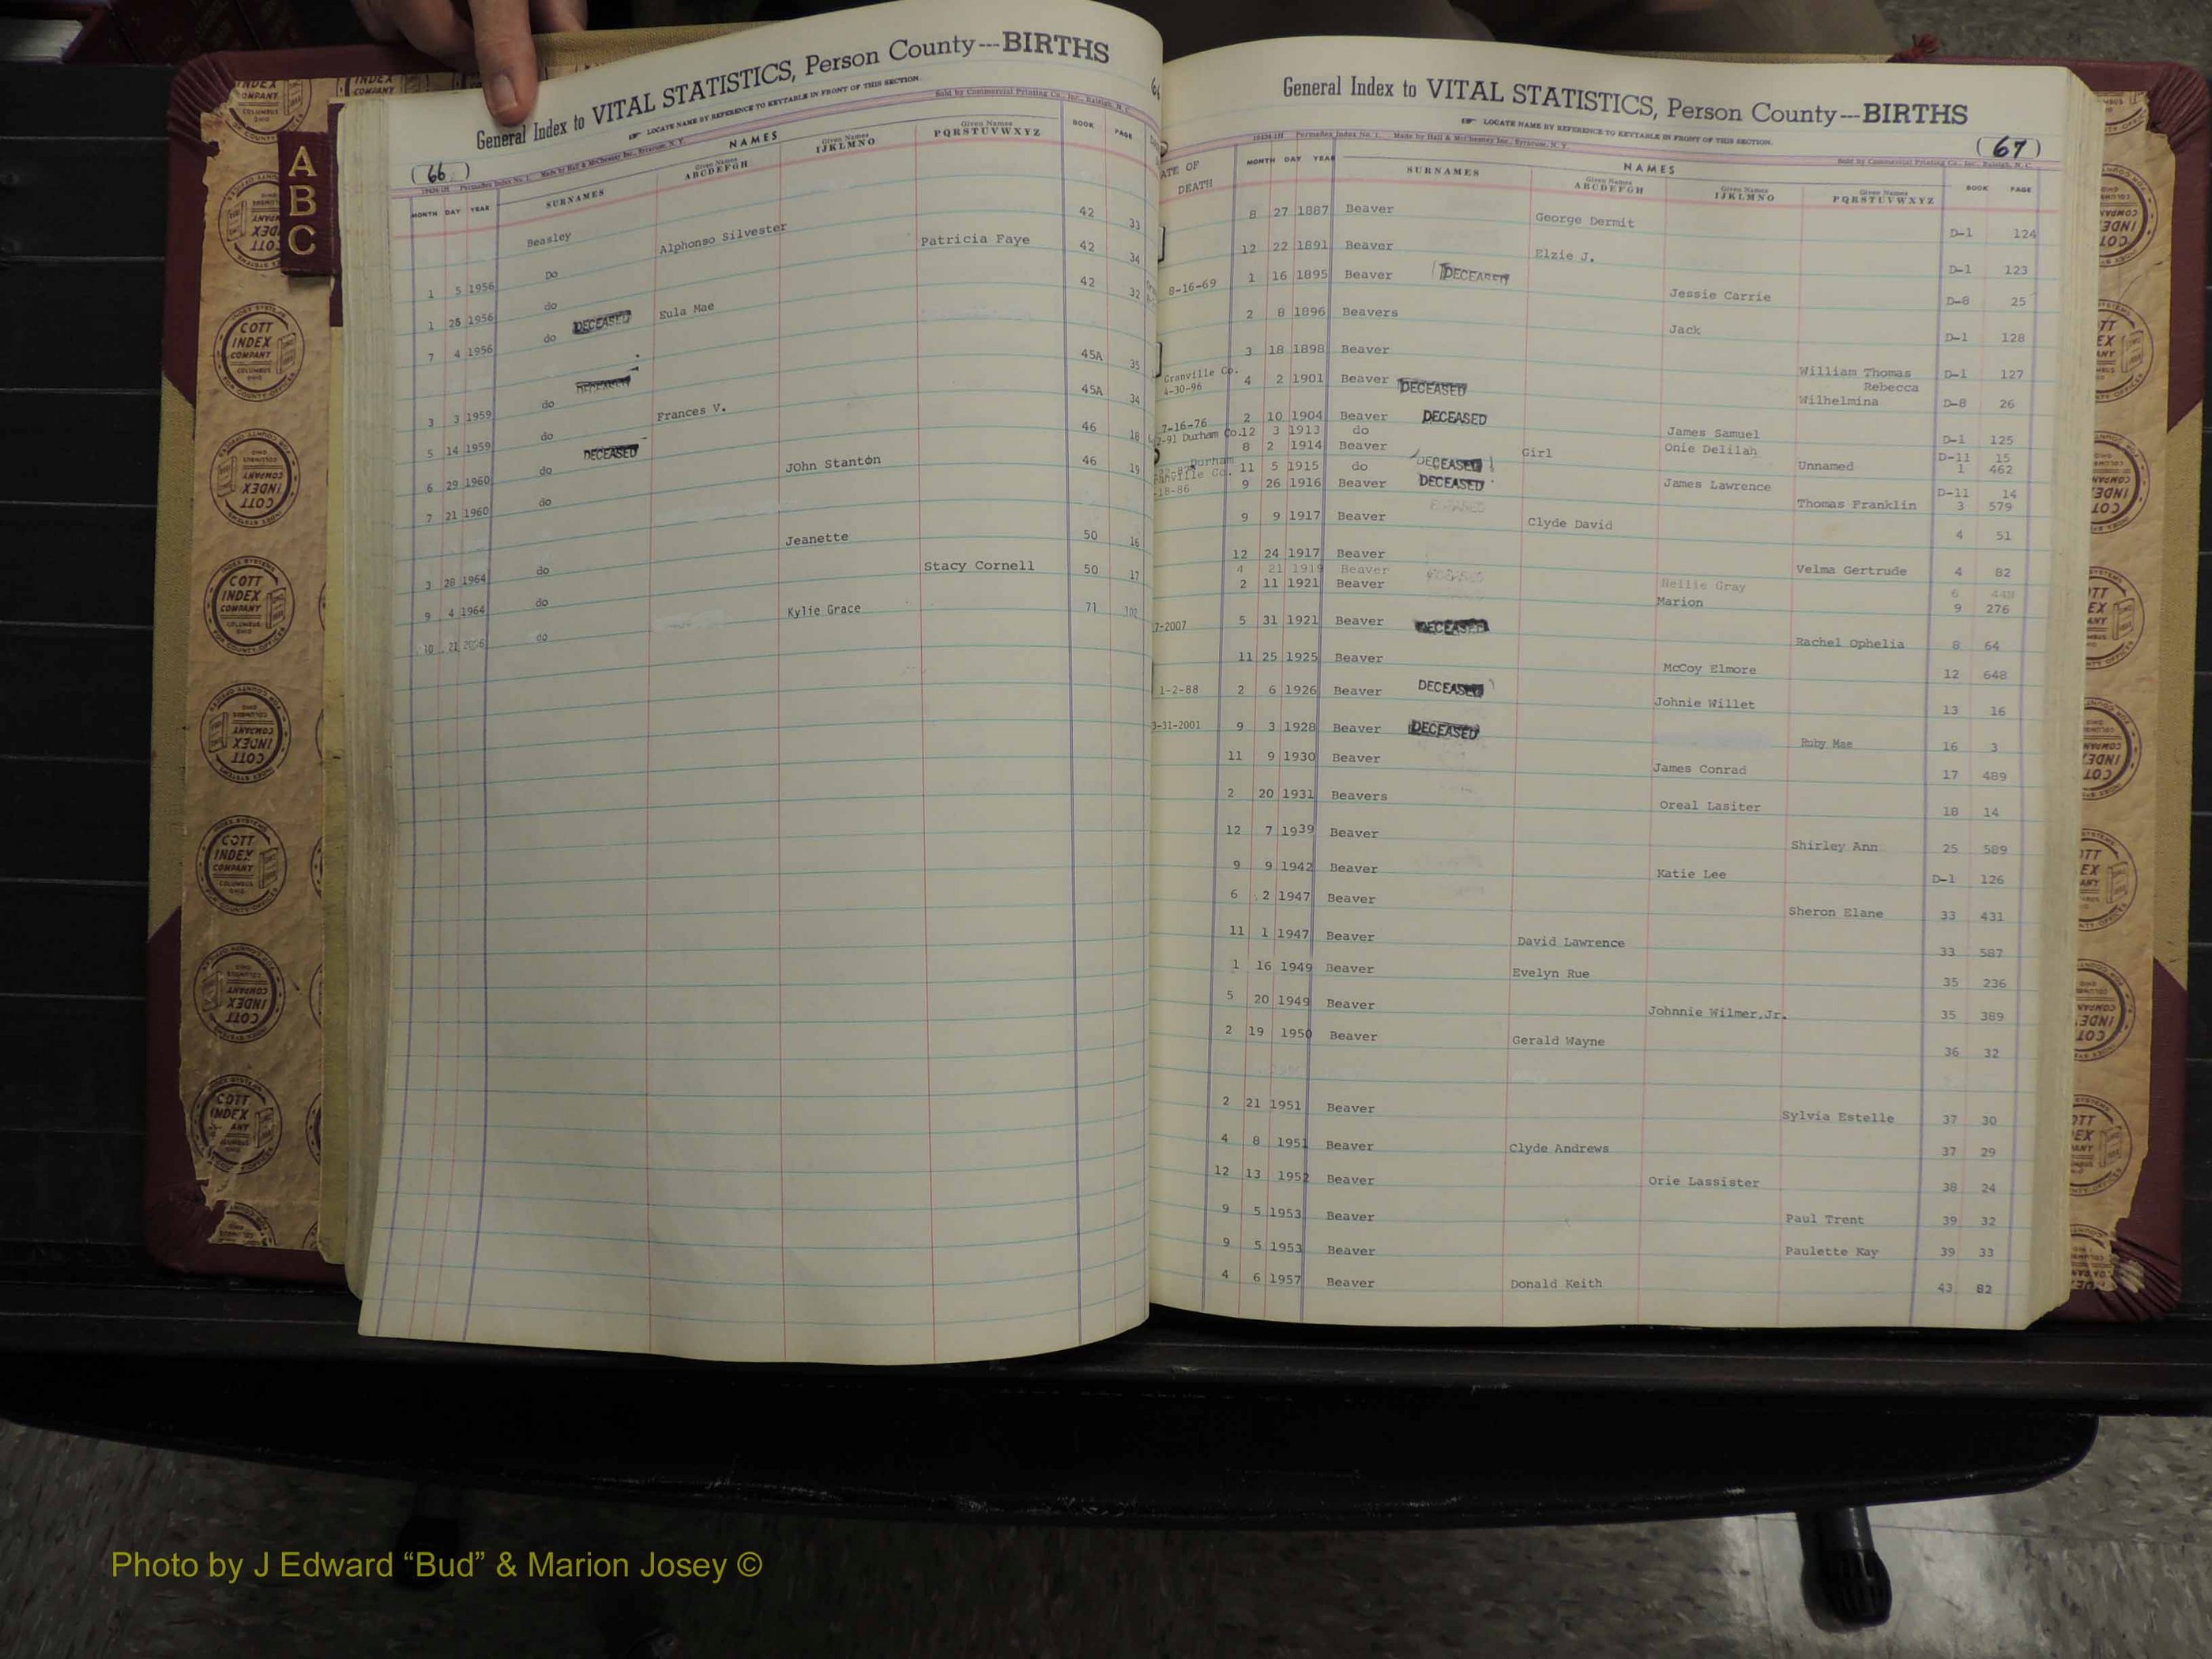 General Index to VITAL STATISTICS, Person County---BIRTHS
LOCATE NAME BY REFERENCE TO KEYTABLE IN FRONT OF THIS SECTION.
(66)
Sold by Commercial Printing Co., Inc., Raleigh, N. C.
MONTH DAY YEAR SURNAMES NAMES Given Names ABCDEFGH Given Names IJKLMNO Given Names PQRSTUVWXYZ BOOK PAGE
Beasley Alphonso Silvester 42 33
1 5 1956 Do Patricia Faye 42 34
1 25 1956 do Eula Mae 42 32
7 4 1956 do DECEASED
45A 35
3 3 1959 do Frances V. 45A 34
5 14 1959 do DECEASED 46 18
6 29 1960 do John Stanton 46 19
7 21 1960 do
Jeanette 50 16
3 28 1964 do Stacy Cornell 50 17
9 4 1964 do Kylie Grace 71 102
10 21 do
A
B
C
General Index to VITAL STATISTICS, Person County---BIRTHS
LOCATE NAME BY REFERENCE TO KEYTABLE IN FRONT OF THIS SECTION.
(67)
Made by Hall & McChesney Inc., Syracuse, N. Y.
Sold by Commercial Printing Co., Inc., Raleigh, N. C.
DEATH MONTH DAY YEAR SURNAMES NAMES Given Names ABCDEFGH Given Names IJKLMNO Given Names PQRSTUVWXYZ BOOK PAGE
8 27 1887 Beaver George Dermit D-1 124
12 22 1891 Beaver Elzie J. D-1 123
8-16-69 1 16 1895 Beaver DECEASED Jessie Carrie D-8 25
2 8 1896 Beavers Jack D-1 128
3 18 1898 Beaver William Thomas D-1 127
Granville Co. 4-30-96 4 2 1901 Beaver DECEASED Rebecca Wilhelmina D-8 26
7-16-76 2 10 1904 Beaver DECEASED James Samuel D-1 125
2-91 Durham Co. 12 3 1913 do Onie Delilah D-11 15
8 2 1914 Beaver Girl Unnamed 1 462
Durham 11 5 1915 do DECEASED James Lawrence D-11 14
18-86 9 26 1916 Beaver DECEASED Thomas Franklin 3 579
9 9 1917 Beaver Clyde David 4 51
12 24 1917 Beaver Velma Gertrude 4 82
4 21 1919 Beaver Nellie Gray 6 448
2 11 1921 Beaver Marion 9 276
7-2007 5 31 1921 Beaver DECEASED Rachel Ophelia 8 64
11 25 1925 Beaver McCoy Elmore 12 648
1-2-88 2 6 1926 Beaver DECEASED Johnie Willet 13 16
3-31-2001 9 3 1928 Beaver DECEASED Ruby Mae 16 3
11 9 1930 Beaver James Conrad 17 489
2 20 1931 Beavers Oreal Lasiter 18 14
12 7 1939 Beaver Shirley Ann 25 589
9 9 1942 Beaver Katie Lee D-1 126
6 2 1947 Beaver Sheron Elane 33 431
11 1 1947 Beaver David Lawrence 33 587
1 16 1949 Beaver Evelyn Rue 35 236
5 20 1949 Beaver Johnnie Wilmer,Jr. 35 389
2 19 1950 Beaver Gerald Wayne 36 32
2 21 1951 Beaver Sylvia Estelle 37 30
4 8 1951 Beaver Clyde Andrews 37 29
12 13 1952 Beaver Orie Lassister 38 24
9 5 1953 Beaver Paul Trent 39 32
9 5 1953 Beaver Paulette Kay 39 33
4 6 1957 Beaver Donald Keith 43 82
COTT INDEX COMPANY COLUMBUS OHIO
Photo by J Edward “Bud” & Marion Josey ©